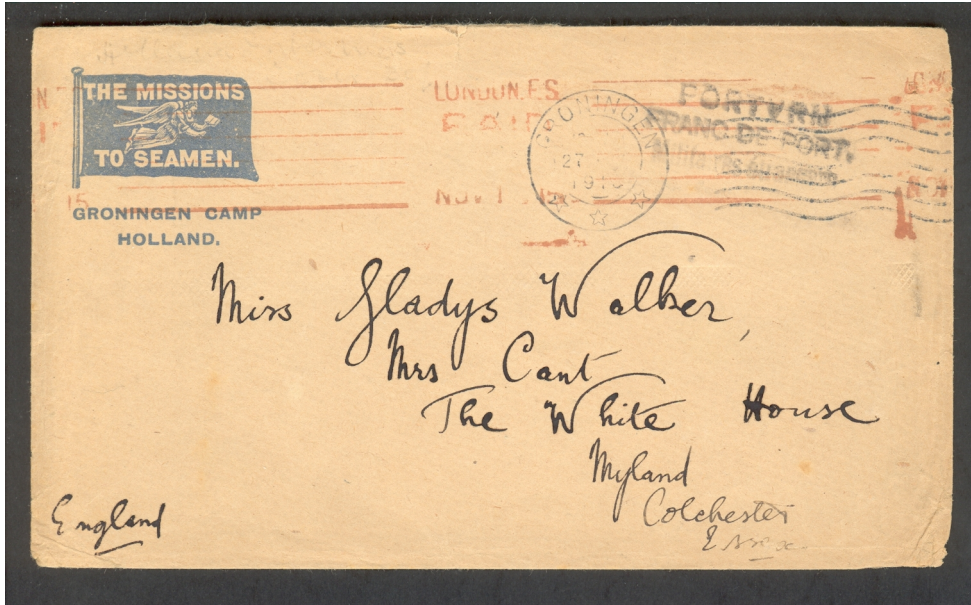 THE MISSIONS
TO SEAMEN.
GRONINGEN CAMP
HOLLAND.
LONDON.E.S.
PAID
NOV 1
15
GRONINGEN
27
PORTVRIJ
FRANC DE PORT.
Miss Gladys Walker,
Mrs Cant
The White House
Myland
Colchester
Essex
England